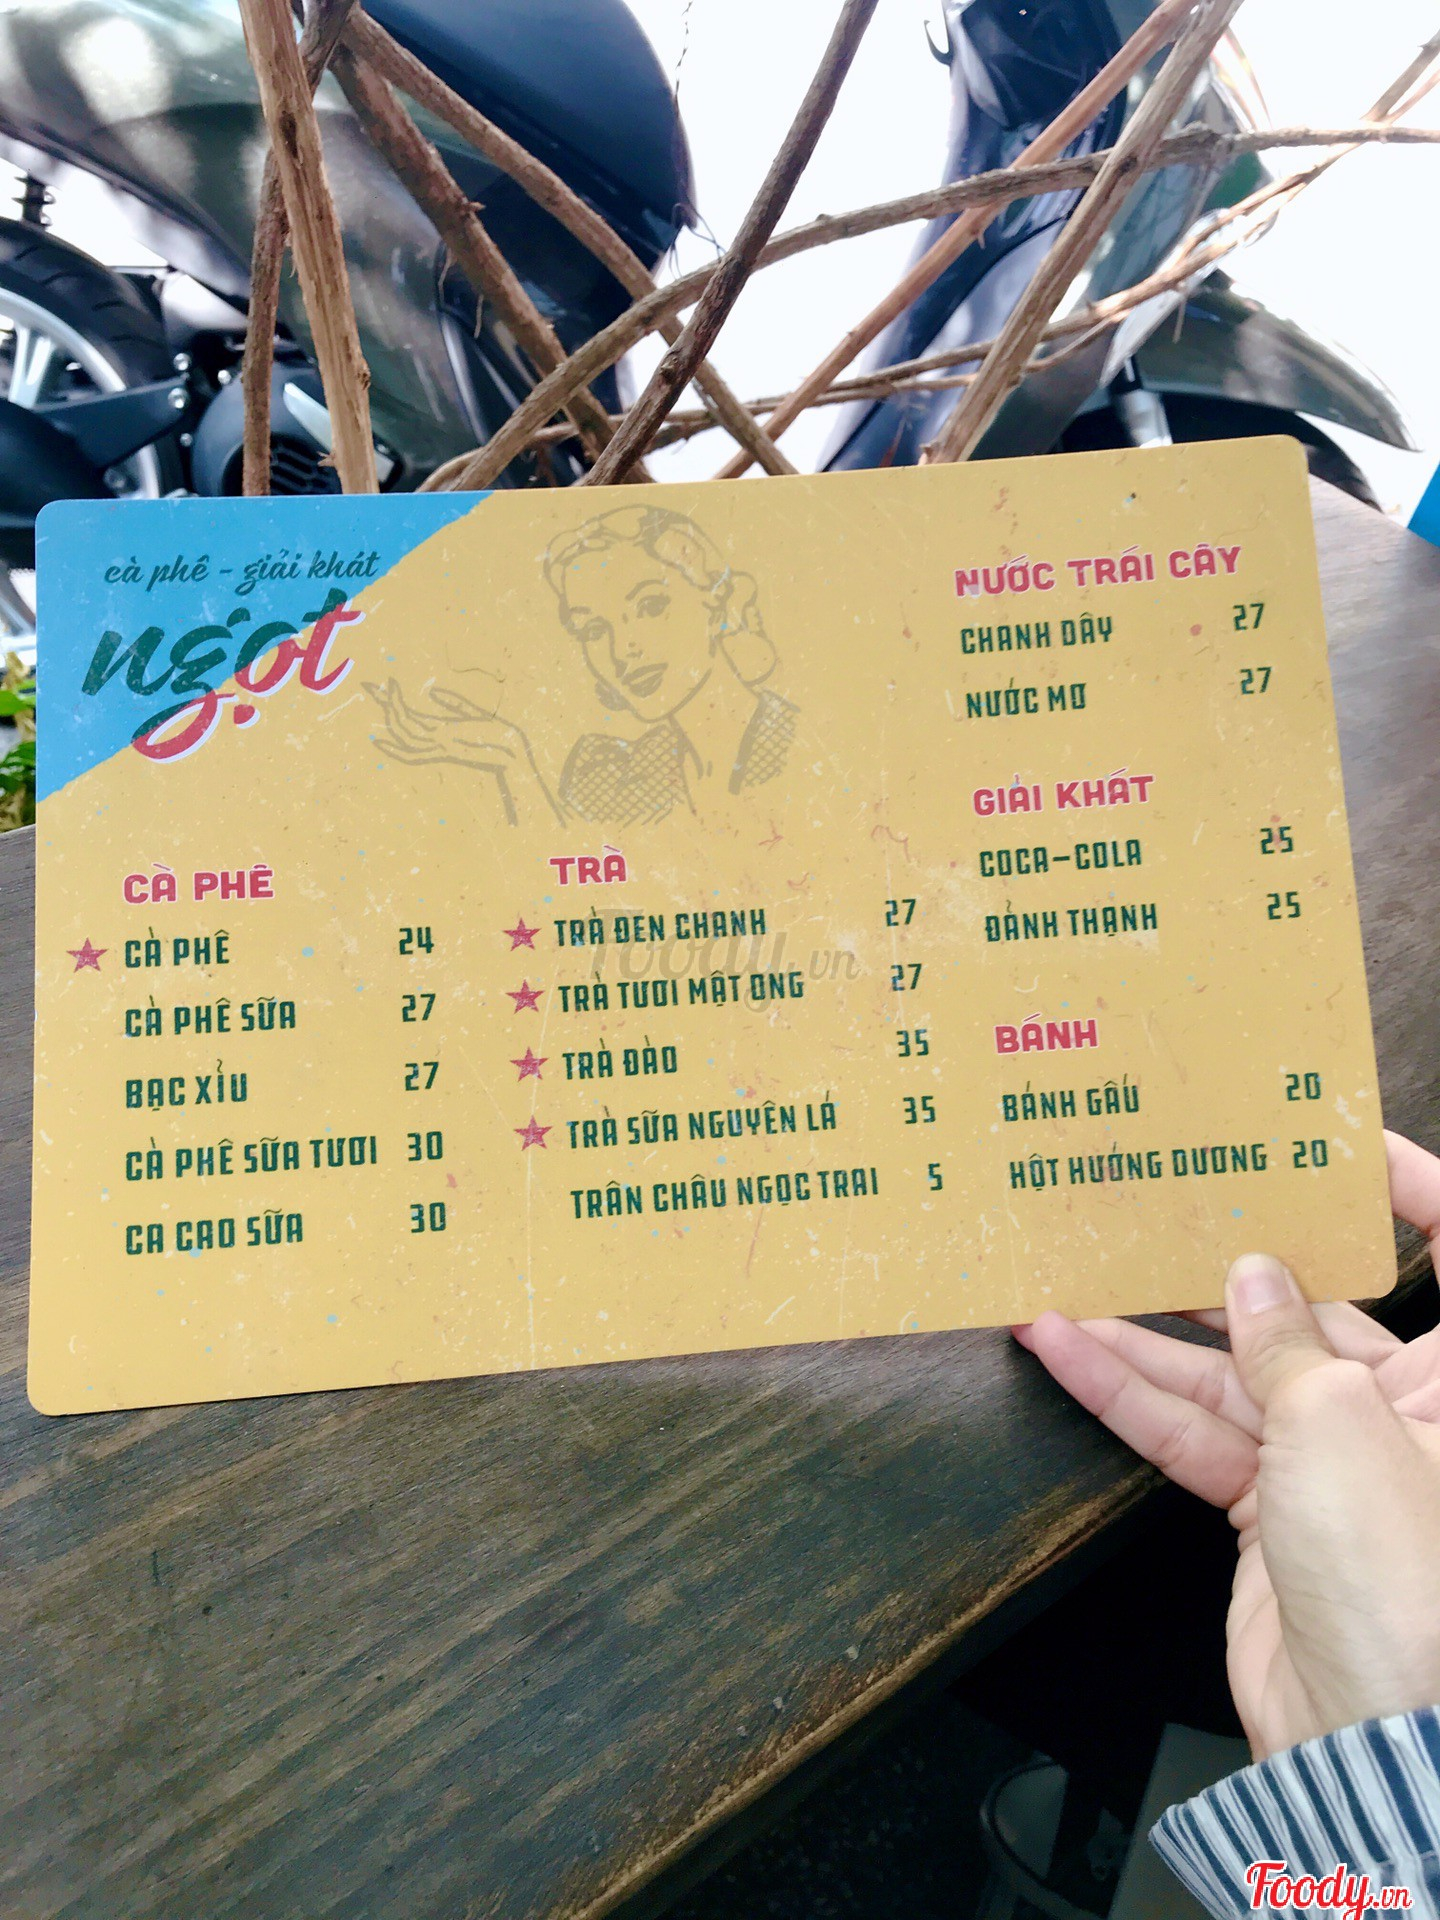 cà phê - giải khát
ngọt
CÀ PHÊ
CÀ PHÊ 24
CÀ PHÊ SỮA 27
BẠC XỈU 27
CÀ PHÊ SỮA TƯƠI 30
CA CAO SỮA 30
TRÀ
TRÀ ĐEN CHANH 27
TRÀ TƯƠI MẬT ONG 27
TRÀ ĐÀO 35
TRÀ SỮA NGUYÊN LÁ 35
TRÂN CHÂU NGỌC TRAI 5
NƯỚC TRÁI CÂY
CHANH DÂY 27
NƯỚC MƠ 27
GIẢI KHÁT
COCA-COLA 25
ĐẢNH THẠNH 25
BÁNH
BÁNH GẤU 20
HỘT HƯỚNG DƯƠNG 20
Foody.vn
Foody.vn